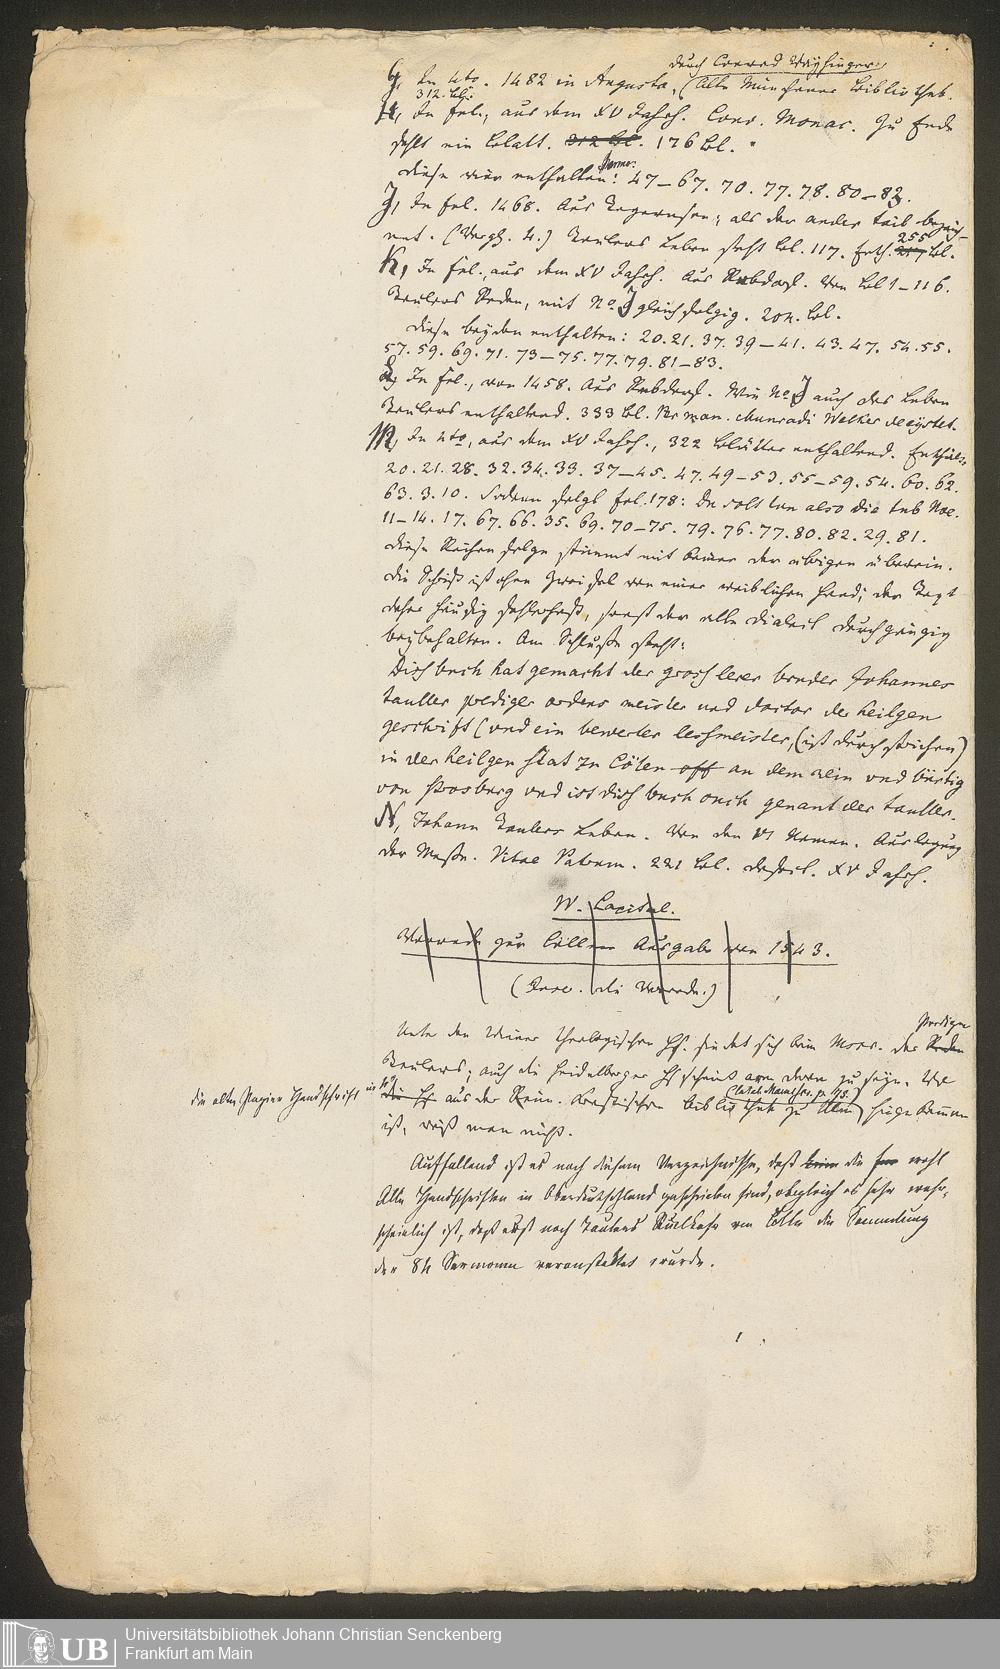 durch Conrad Wayfinger.
G, In 4to. 1482 in Augusta, (Alte Münchener Bibliothek.
312. Bl:
H, In fol., aus dem XV Jahrh. Conv. Monac. Zu Ende
fehlt ein Blatt. 312 Bl. 176 Bl.
Serm:
Diese nur enthalten: 47–67. 70. 77. 78. 80–83.
J, In fol. 1468. Aus Tegernsee; als der ander teil bezeich-
net. (Vergl. 4.) Taulers Leben steht Bl. 117. Enth. 217 Bl.
255
K, In fol., aus dem XV Jahrh. Aus Rebdorf. Von Bl 1–116.
Taulers Reden, mit No. J gleichfolgig. 204. Bl.
Diese beyden enthalten: 20. 21. 37. 39–41. 43. 47. 54. 55.
57. 59. 69. 71. 73–75. 77. 79. 81–83.
L, In fol., von 1458. Aus Rebdorf. Wie No. J auch das Leben
Taulers enthaltend. 333 Bl. Per man. Chunradi Welker de eystet.
M, In 4to, aus dem XV Jahrh., 322 Blätter enthaltend. Enthält:
20. 21. 28. 32. 34. 33. 37–45. 47. 49–53. 55–59. 54. 60. 62.
63. 3. 10. Sodann folgt fol. 178: Du solt lan also die tub Noe.
11–14. 17. 67. 66. 35. 69. 70–75. 79. 76. 77. 80. 82. 29. 81.
Diese Reihenfolge stimmt mit keiner der übrigen überein.
Die Schrift ist ohne Zweifel von einer weiblichen Hand; der Text
daher häufig fehlerhaft, sonst der alte Dialect durchgängig
beybehalten. Am Schluße steht:
Disß buch hat gemacht der grosß lerer bruder Johannes
tauller prediger ordens meister und doctor der heilgen
geschrift (und ein bewerter lesmeister, (ist durchstrichen)
in der heilgen stat zu Cölen off an dem Rein und bürtig
von strosburg und ist disß buch ouch genant der tauller.
N, Johann Taulers Leben. Von den VI Namen. Auslegung
der Messe. Vitae Patrum. 221 Bl. XV Jahrh.
IV. Capitel.
Vorrede zur Cöllner Ausgabe von 1543.
(Inse. die Vorrede.)
Unter den Wiener theologischen Hs. findet sich kein Mscr. der Reden
Predigen
Taulers; auch die Heidelberger Hs scheint arm daran zu seyn. Wo
die alte Papier Handschrift in 4o
die Hs aus der Raim. Krafftischen Bibliothek zu Ulm hinge kommen
ist, weiß man nicht.
Auffallend ist es nach diesem Verzeichnisse, daß keine die wohl
Alle Handschriften in Oberdeutschland geschrieben sind, obgleich es sehr wahr-
scheinlich ist, daß erst nach Taulers Rückkehr von Cölln die Sammlung
der 84 Sermonen veranstaltet wurde.
UB
Universitätsbibliothek Johann Christian Senckenberg
Frankfurt am Main